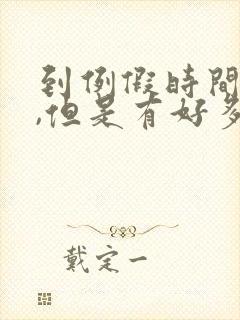 到例假時間
,但是有好多
戴定一